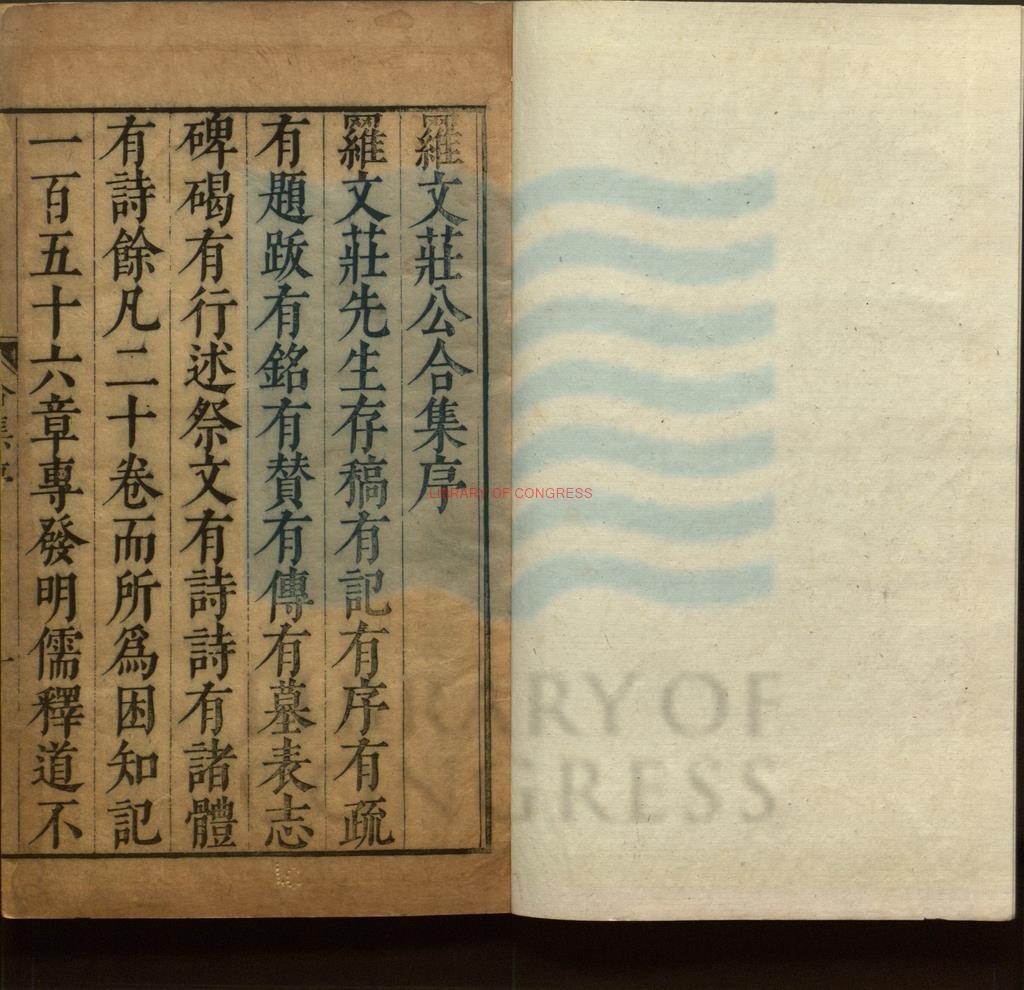 羅文莊公合集序
羅文莊先生存稿有記有序有疏
有題跋有銘有贊有傳有墓表志
碑碣有行述祭文有詩詩有諸體
有詩餘凡二十卷而所爲困知記
一百五十六章專發明儒釋道不
合集序
一
LIBRARY OF CONGRESS
RARY OF
NGRESS